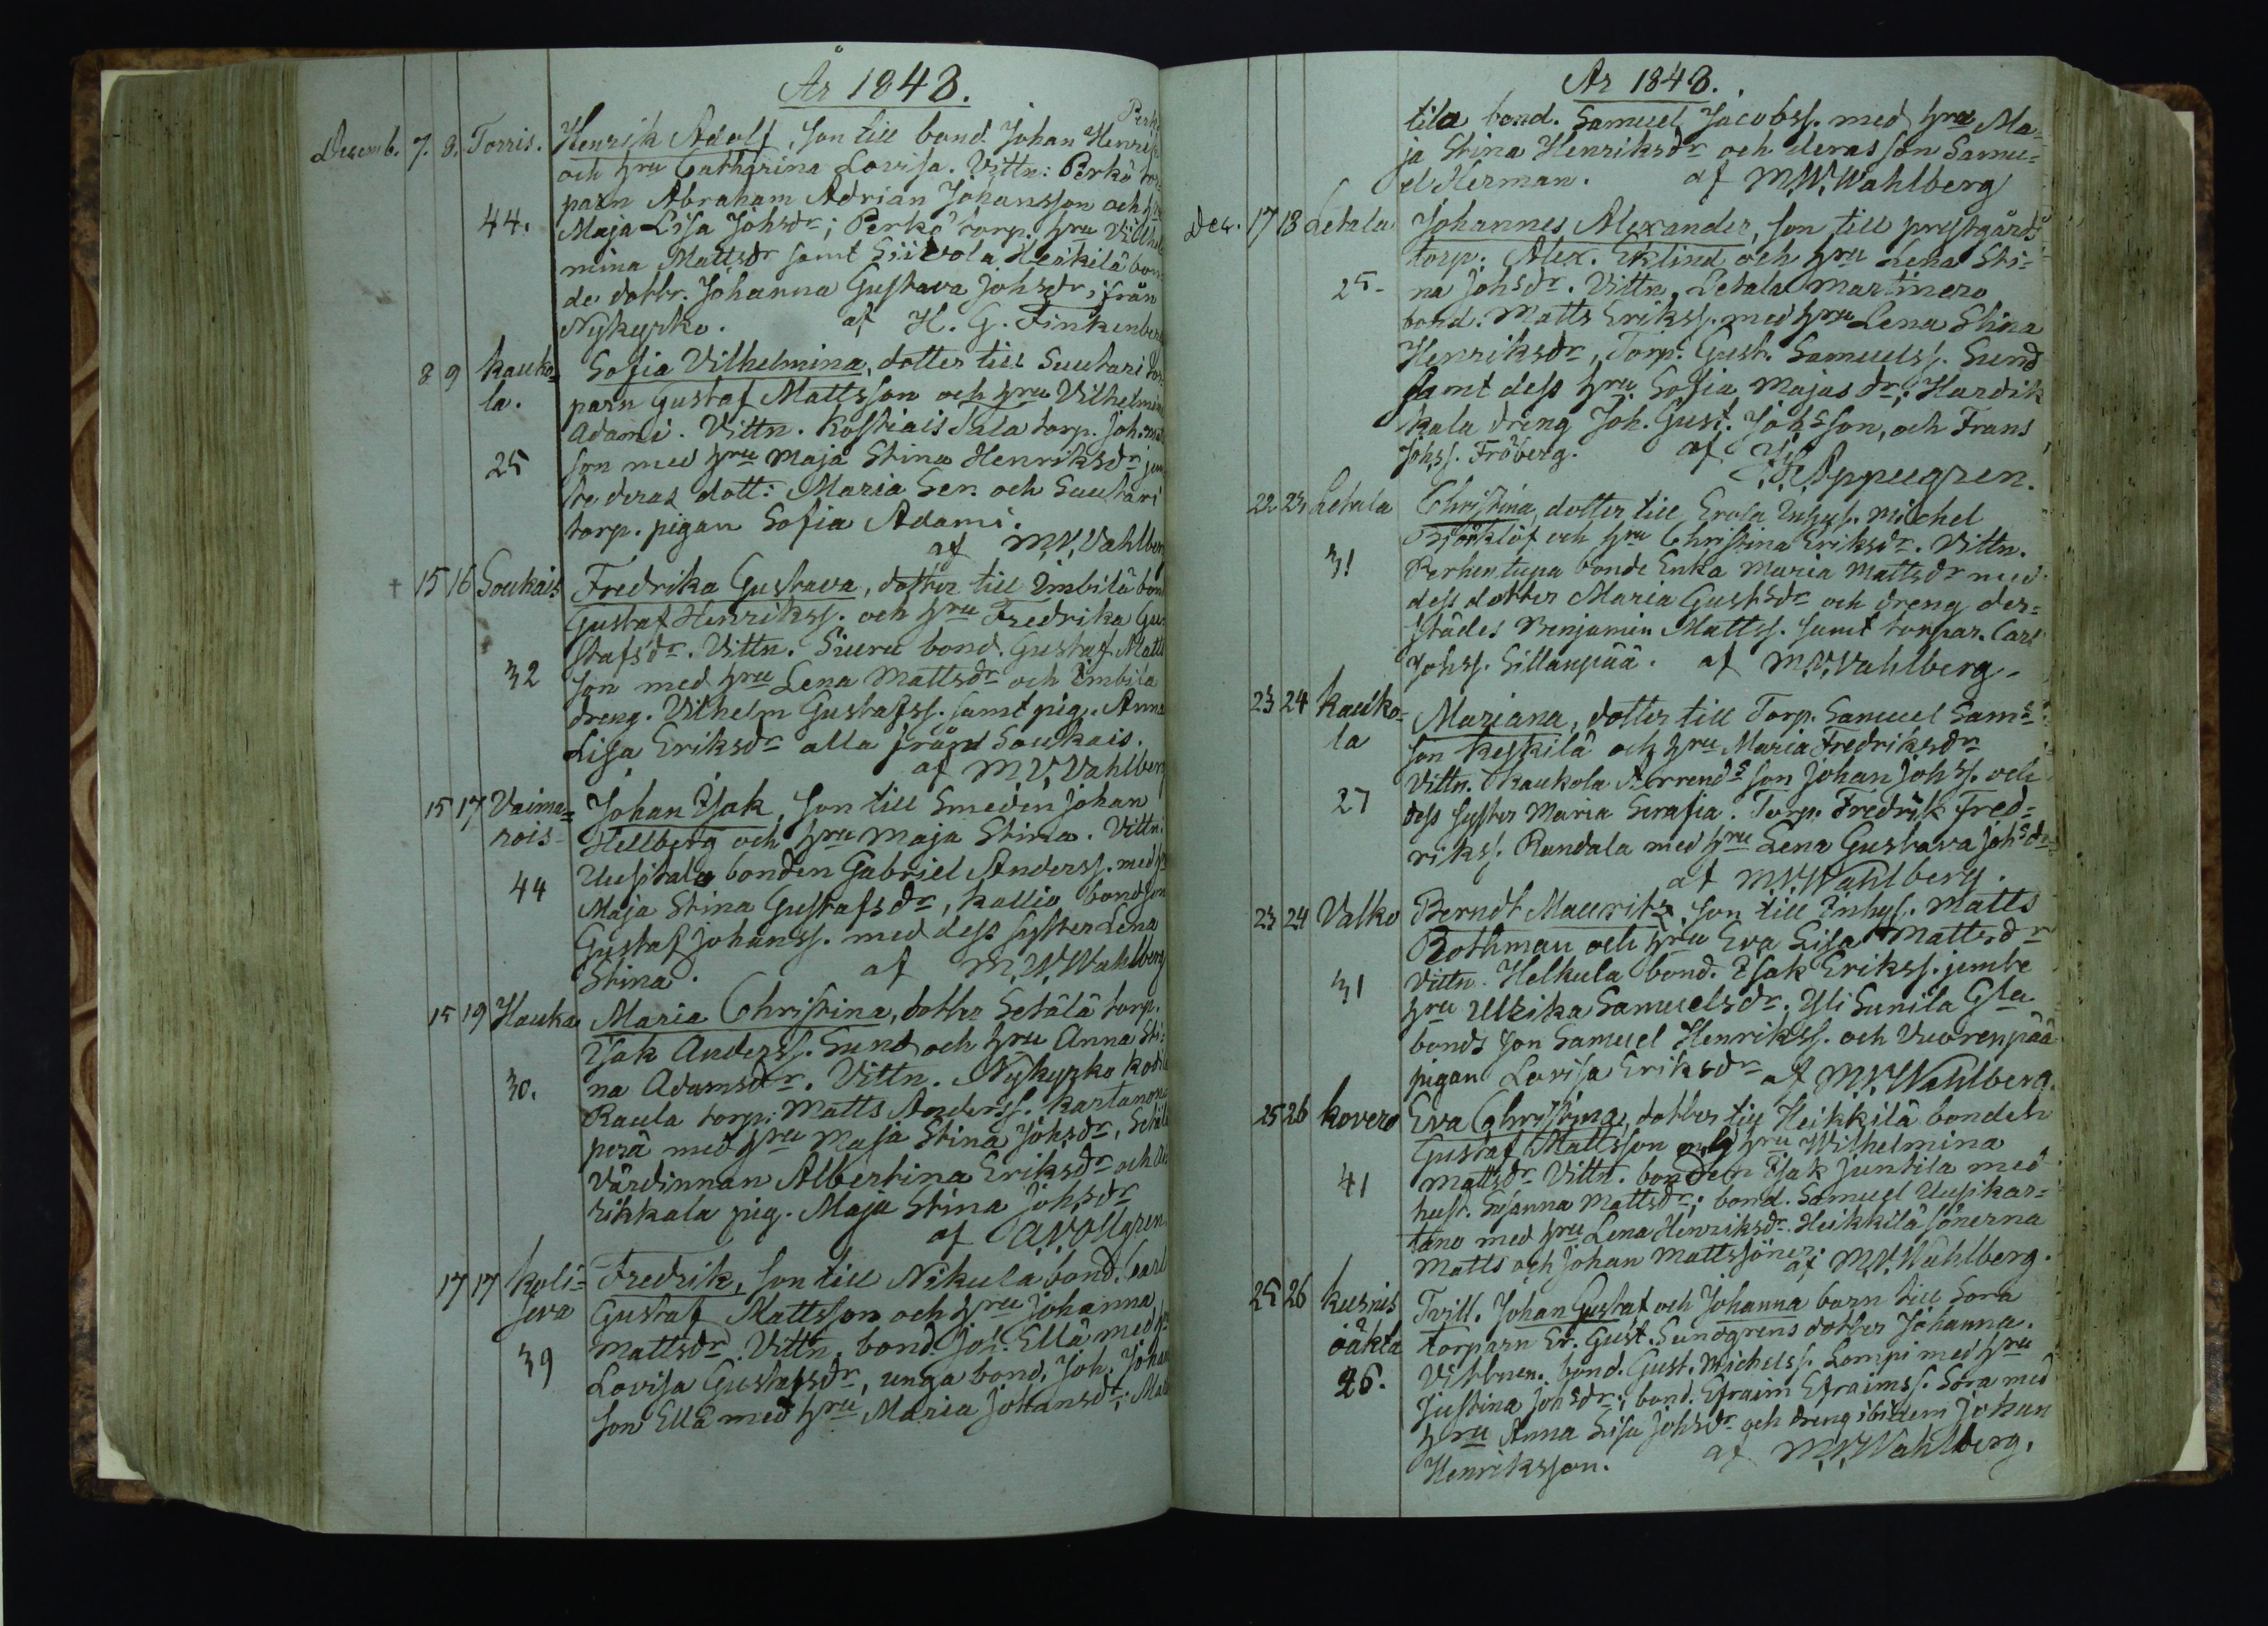 År 1848.
Decemb. 7. 8. Torris. Henrik Adolf, son till bond. Johan Henrikss.
och hru Catharina Lovisa. Vittn: Perkö tor=
parn Abraham Adrian Johansson och hru
44. Maja Lisa Johsdr; Perkö torp. hru Vilhel
mina Mattsdr samt Siivola Heikilä bon
de dottr. Johanna Gustava Johsdr, från
Nykyrko. af H. G. Finkenberg
8 9 Kauko= Sofia Vilhelmina, dotter till Suutari tor
la. parn Gustaf Mattsson och hru Vilhelmina
Adami. Vittn. Kostiais Sala torp. Joh.
25 son med hru Maja Stina Henriksdr jem
te deras dott: Maria Ser. och Suutari
torp. pigan Sofia Adami.
af M.V. Vahlberg
† 15 16 Soukais Fredrika Gustava, dotter till Imbilä bond
Gustaf Henrikss. och hru Fredrika Gu
stafsdr. Vittn. Siuru bond. Gustaf Matts
32 son med hru Lena Mattsdr och Imbila
dreng. Vilhelm Gustafss. samt pig. Anna
Lisa Eriksdr alla från Soukais.
af M V. Vahlberg
15 17 Vaima= Johan Isak, son till Smeden Johan
rois Hellberg och hru Maja Stina. Vittn:
Uusitalo bonden Gabriel Anderss. med hru
44 Maja Stina Gustafsdr, Kallio bondson
Gustaf Johanss. med dess syster Lena
Stina. af M.V. Wahlberg
15 19 Hauka Maria Christina, dotter Setälä torp.
Isak Anderss. Sund och hru Anna Sti=
30. na Adamsdr. Vittn. Nykyrko
Raula torp: Matts Anderss. Kartanon
perä med hru Maja Stina Johsdr, Setälä
Värdinnan Albertina Eriksdr och
rikkala pig. Maja Stina Johsdr
af A.V. Ollgren
17 17 Koli= Fredrik, son till Nikula bond. Carl
seva Gustaf Mattsson och hru Johanna
Mattsdr. Vittn. bond. Joh. Ellä med hru
39 Lovisa Gustafsdr, unga bond. Joh. Johan
son Ellä med hru Maria Johansdr; Mat
År 1848.
tila bond. Samuel Jacobss. med hru Ma=
ja Stina Henriksdr och deras son Samu=
el Herman. af M.V. Wahlberg
Dec. 17 18 Letala Johannes Alexander, son till prestgårds
torp. Alex. Eklind och hru Lena Sti=
25 na Johsdr. Vittn. Letala Martinero
bond. Matts Erikss. med hru Lena Stina
Henriksdr, Torp. Gust. Samuelss. Sund
samt dess hru Sofia Majasdr; Hardik
kala dreng Joh. Gust. Johsson, och Frans
Johss. Fröberg. af Appelgren.
22 23 Letala Christina, dotter till Erola Inhys. Michel
Björklöf och hru Christina Eriksdr. Vittn.
31 Perhentupa bonde Enka Maria Mattsdr med
dess dotter Maria Gustsdr och dreng der=
städes Benjamin Mattss. samt torpar. Carl
Johss. Sillanpää. af M.V. Vahlberg.
23 24 Kauko= Mariana, dotter till Torp. Samuel Sams
la son Keskilä och hru Maria Fredriksdr
Vittn. Kaukola Arrends son Johan Johss. och
27 dess syster Maria Serafia. Torp. Fredrik Fred=
rikss. Randala med hru Lena Gustava Johsdr
af M.V. Wahlberg.
23 24 Valko Berndt Mauritz, son till Inhys. Matts
Rothman och hru Eva Lisa Mattsdr
31 Vittn. Helkula bond. Isak Erikss. jemte
hru Ulrika Samuelsdr; Yli Sunila Gla
bonds son Samuel Henrikss. och Vuorenpää
pigan Lovisa Eriksdr af M.V. Wahlberg.
25 26 Kovero Eva Christina, dotter till Heikkilä bonden
Gustaf Mattsson och hru Wilhelmina
41 Mattsdr Vittn. bonden Isak Juntila med
hust. Susanna Mattsdr; bond. Samuel Uusikar=
tano med hru Lena Henriksdr. Heikkilä sönerna
Matts och Johan Mattssöner. af M.V. Wahlberg.
25 26 Kusnis Tvill. Johan Gustaf och Johanna barn till Sora
oäkta torparn Er. Gust. Sundgrens dotter Johanna.
26. Vittnen. bond. Gust. Michelss. Lompi med hru
Justina Johsdr; bond. Efraim Efraimss. Sora med
hru Anna Lisa Johsdr och dreng ibidem Johan
Henriksson. af M.V. Wahlberg.